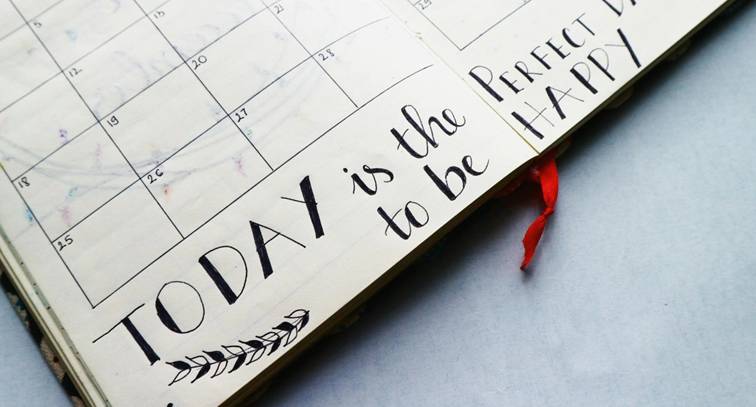 5
12
13
18
19
20
21
25
26
27
28
29
TODAY is the
to be
PERFECT
HAPPY